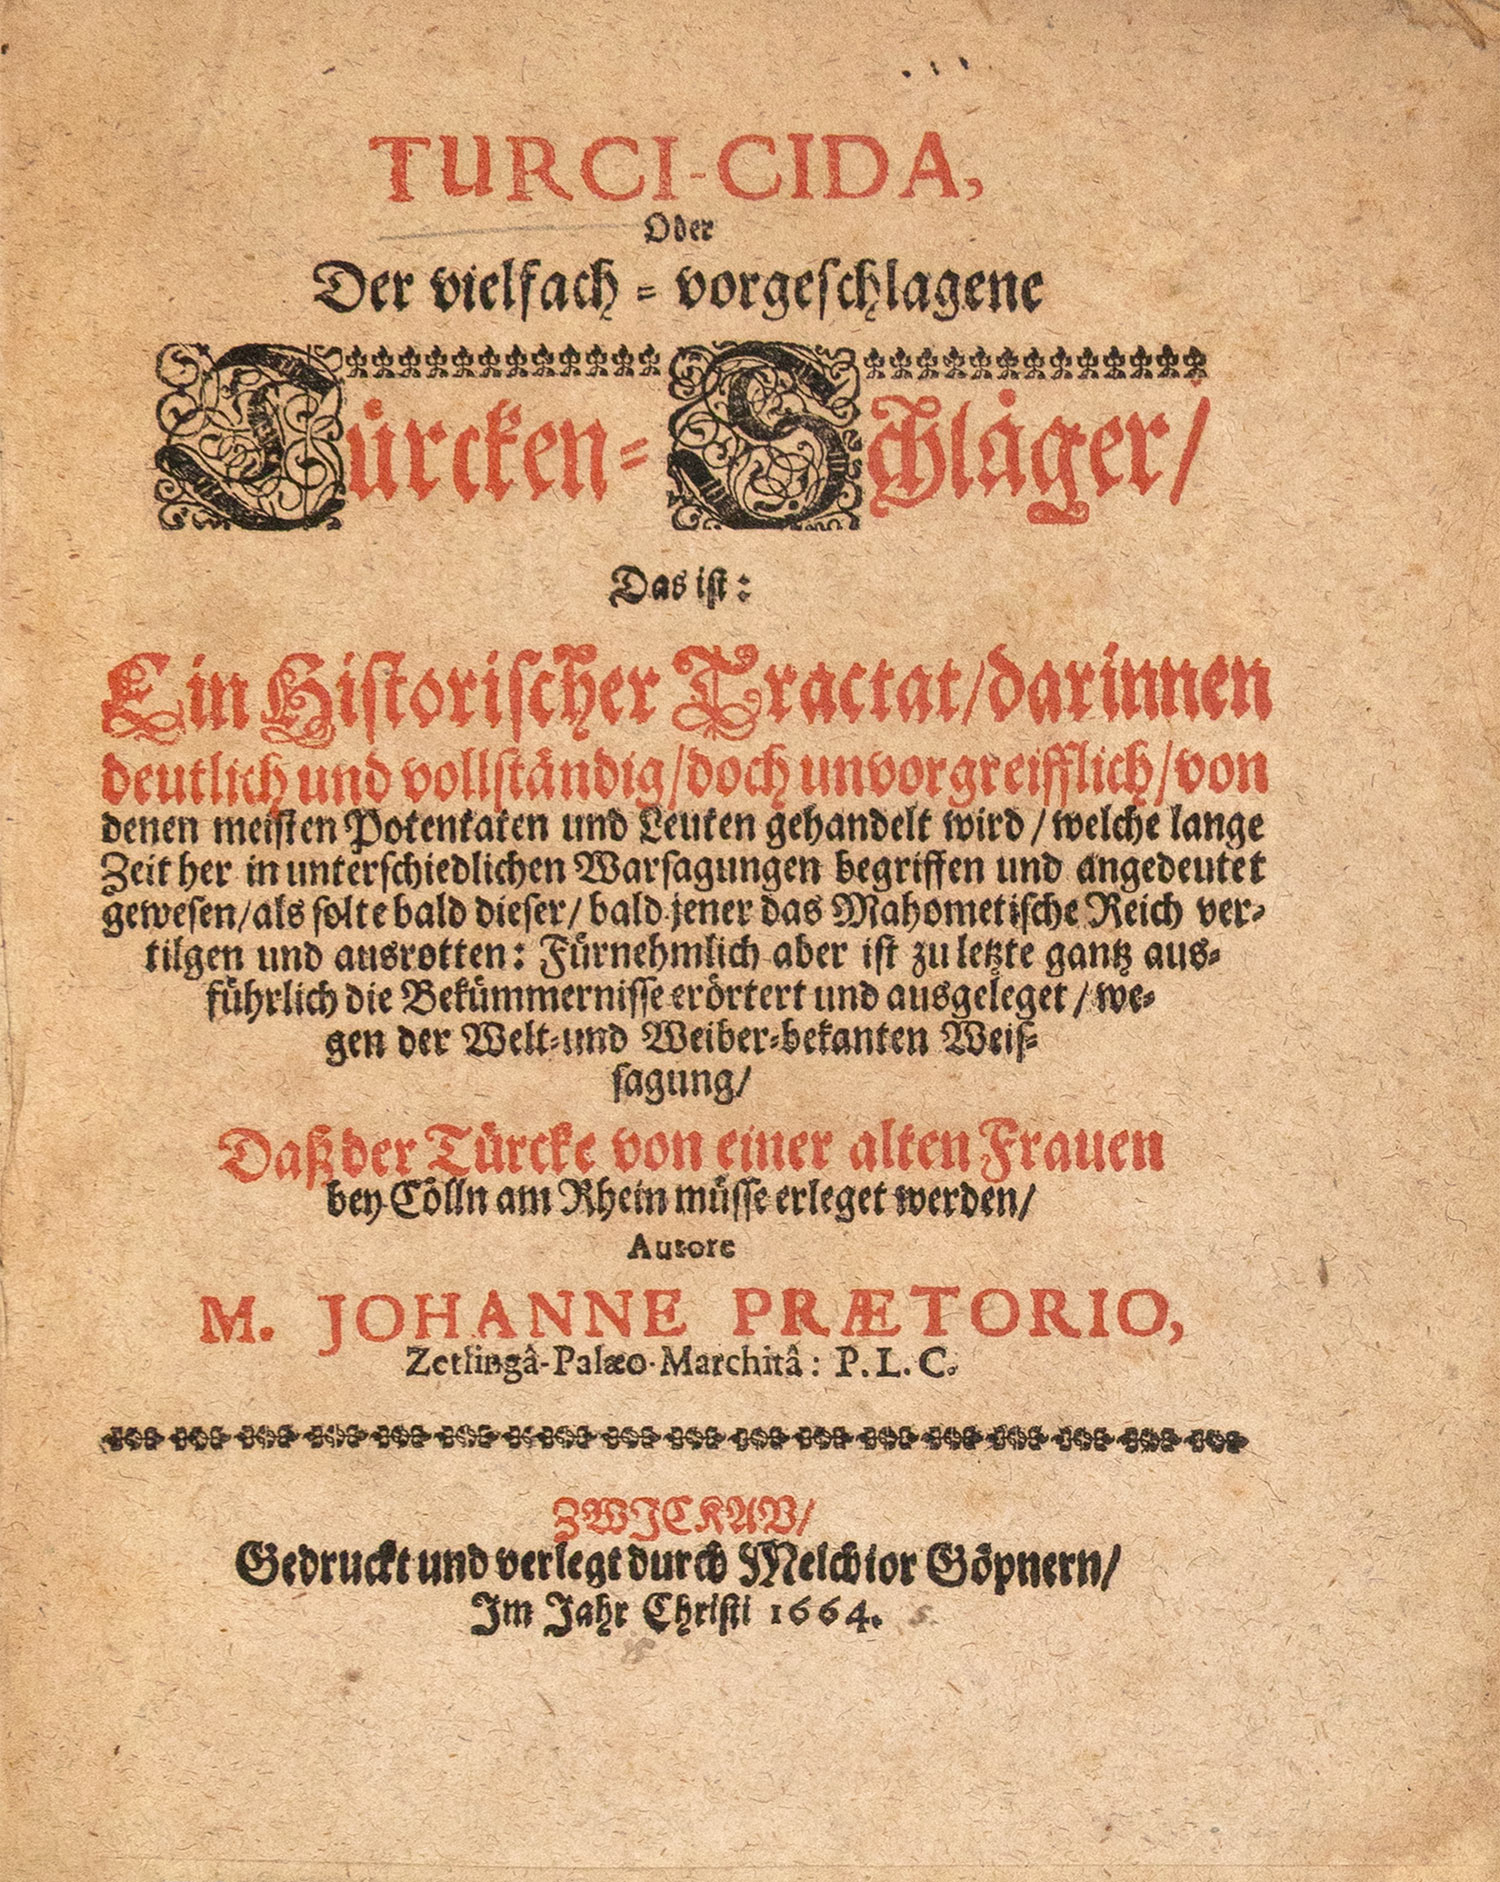 TURCI-CIDA,
Oder
Der vielfach-vorgeschlagene
Türcken-Schläger/
Das ist:
Ein Historischer Tractat/darinnen
deutlich und vollständig/doch unvorgreifflich/von
denen meisten Potentaten und Leuten gehandelt wird/welche lange
Zeit her in unterschiedlichen Warsagungen begriffen und angedeutet
gewesen/als solte bald dieser/bald jener das Mahometische Reich ver-
tilgen und ausrotten: Fürnehmlich aber ist zu letzte gantz aus-
führlich die Bekümmernisse erörtert und ausgeleget/we-
gen der Welt-und Weiber-bekanten Weis-
sagung/
Daß der Türcke von einer alten Frauen
bey Cölln am Rhein müsse erleget werden/
Autore
M. JOHANNE PRÆTORIO,
Zetlingâ-Palæo-Marchitâ: P. L. C.
ZWICKAV/
Gedruckt und verlegt durch Melchior Göpnern/
Im Jahr Christi 1664.